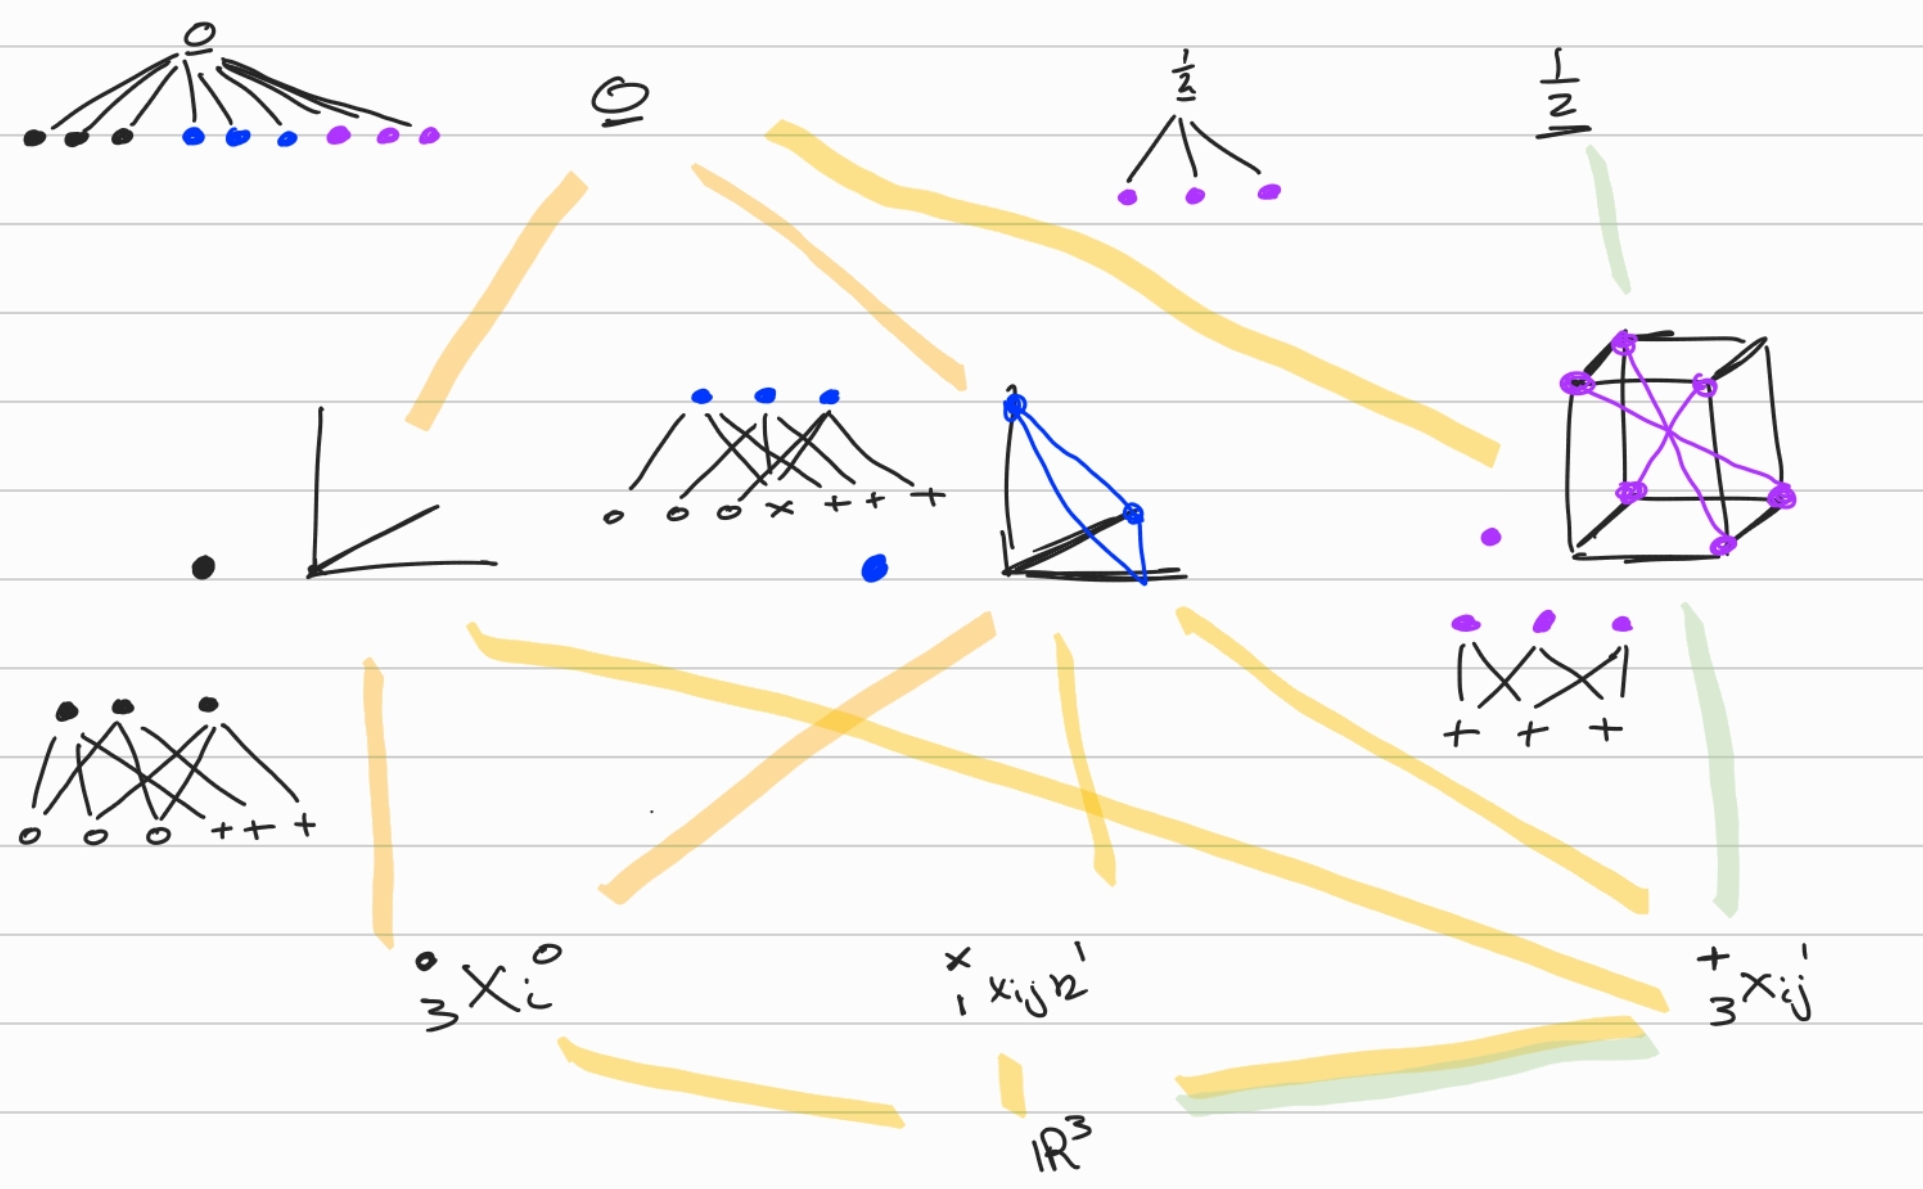 0
0
1/2
1/2
o o o x + + +
+ + +
o o o + + +
o 3 Xi 0
x 1 xijk 1
+ 3 xij 1
ℝ³